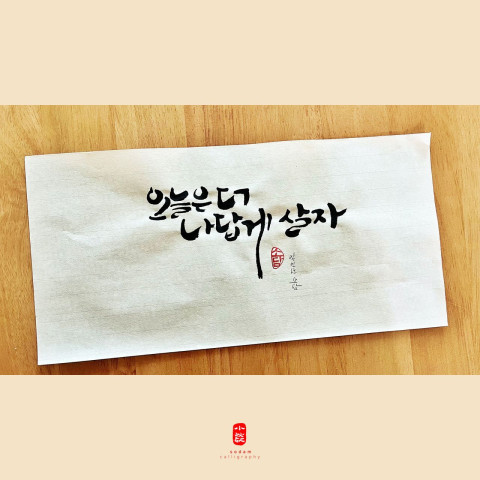 오늘은 더
나답게 살자
sodam
calligraphy